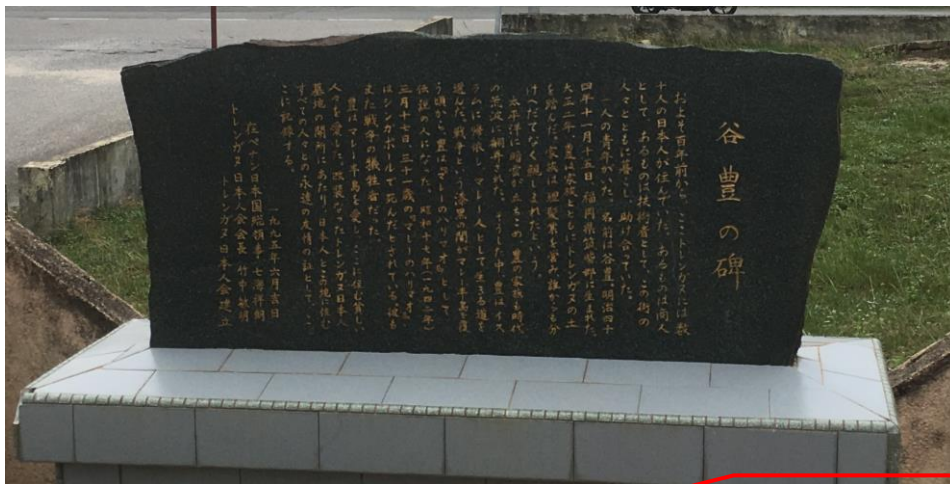 谷豊の碑
およそ百年前から、ここトレンガヌには数
十人の日本人が住んでいた。あるものは商人
として、あるものは技術者として、この街の
人々とともに暮らし、助け合っていた。
一人の青年がいた。名前は谷豊。明治四十
四年十一月十五日、福岡県筑紫郡に生まれた。
大正二年、豊は家族とともにトレンガヌの土
を踏んだ。家族は理髪業を営み、誰からも分
けへだてなく親しまれたという。
太平洋に暗雲が立ちこめ、豊の家族も時代
の荒波に翻弄された。そうした中、豊はイス
ラムに帰依し、マレー人として生きる道を
選んだ。戦争という漆黒の闇がマレー半島を覆
う頃から、豊はマレーのハリマオとして
伝説の人になった。昭和十七年（一九四二年）
三月十七日、三十一歳のマレーのハリマオ
はシンガポールで死んだとされている。彼も
また戦争の犠牲者だった。
豊はマレー半島を愛し、ここに住む貧しい
人々を愛した。改装なったトレンガヌ日本人
墓地の開所にあたり、日本人とこの地に住む
すべての人々との永遠の友情の証として、こ
こに記録する。
一九九五年六月吉日
在ペナン日本国総領事 七海祥朗
トレンガヌ日本人会会長 竹中敏明
トレンガヌ日本人会建立